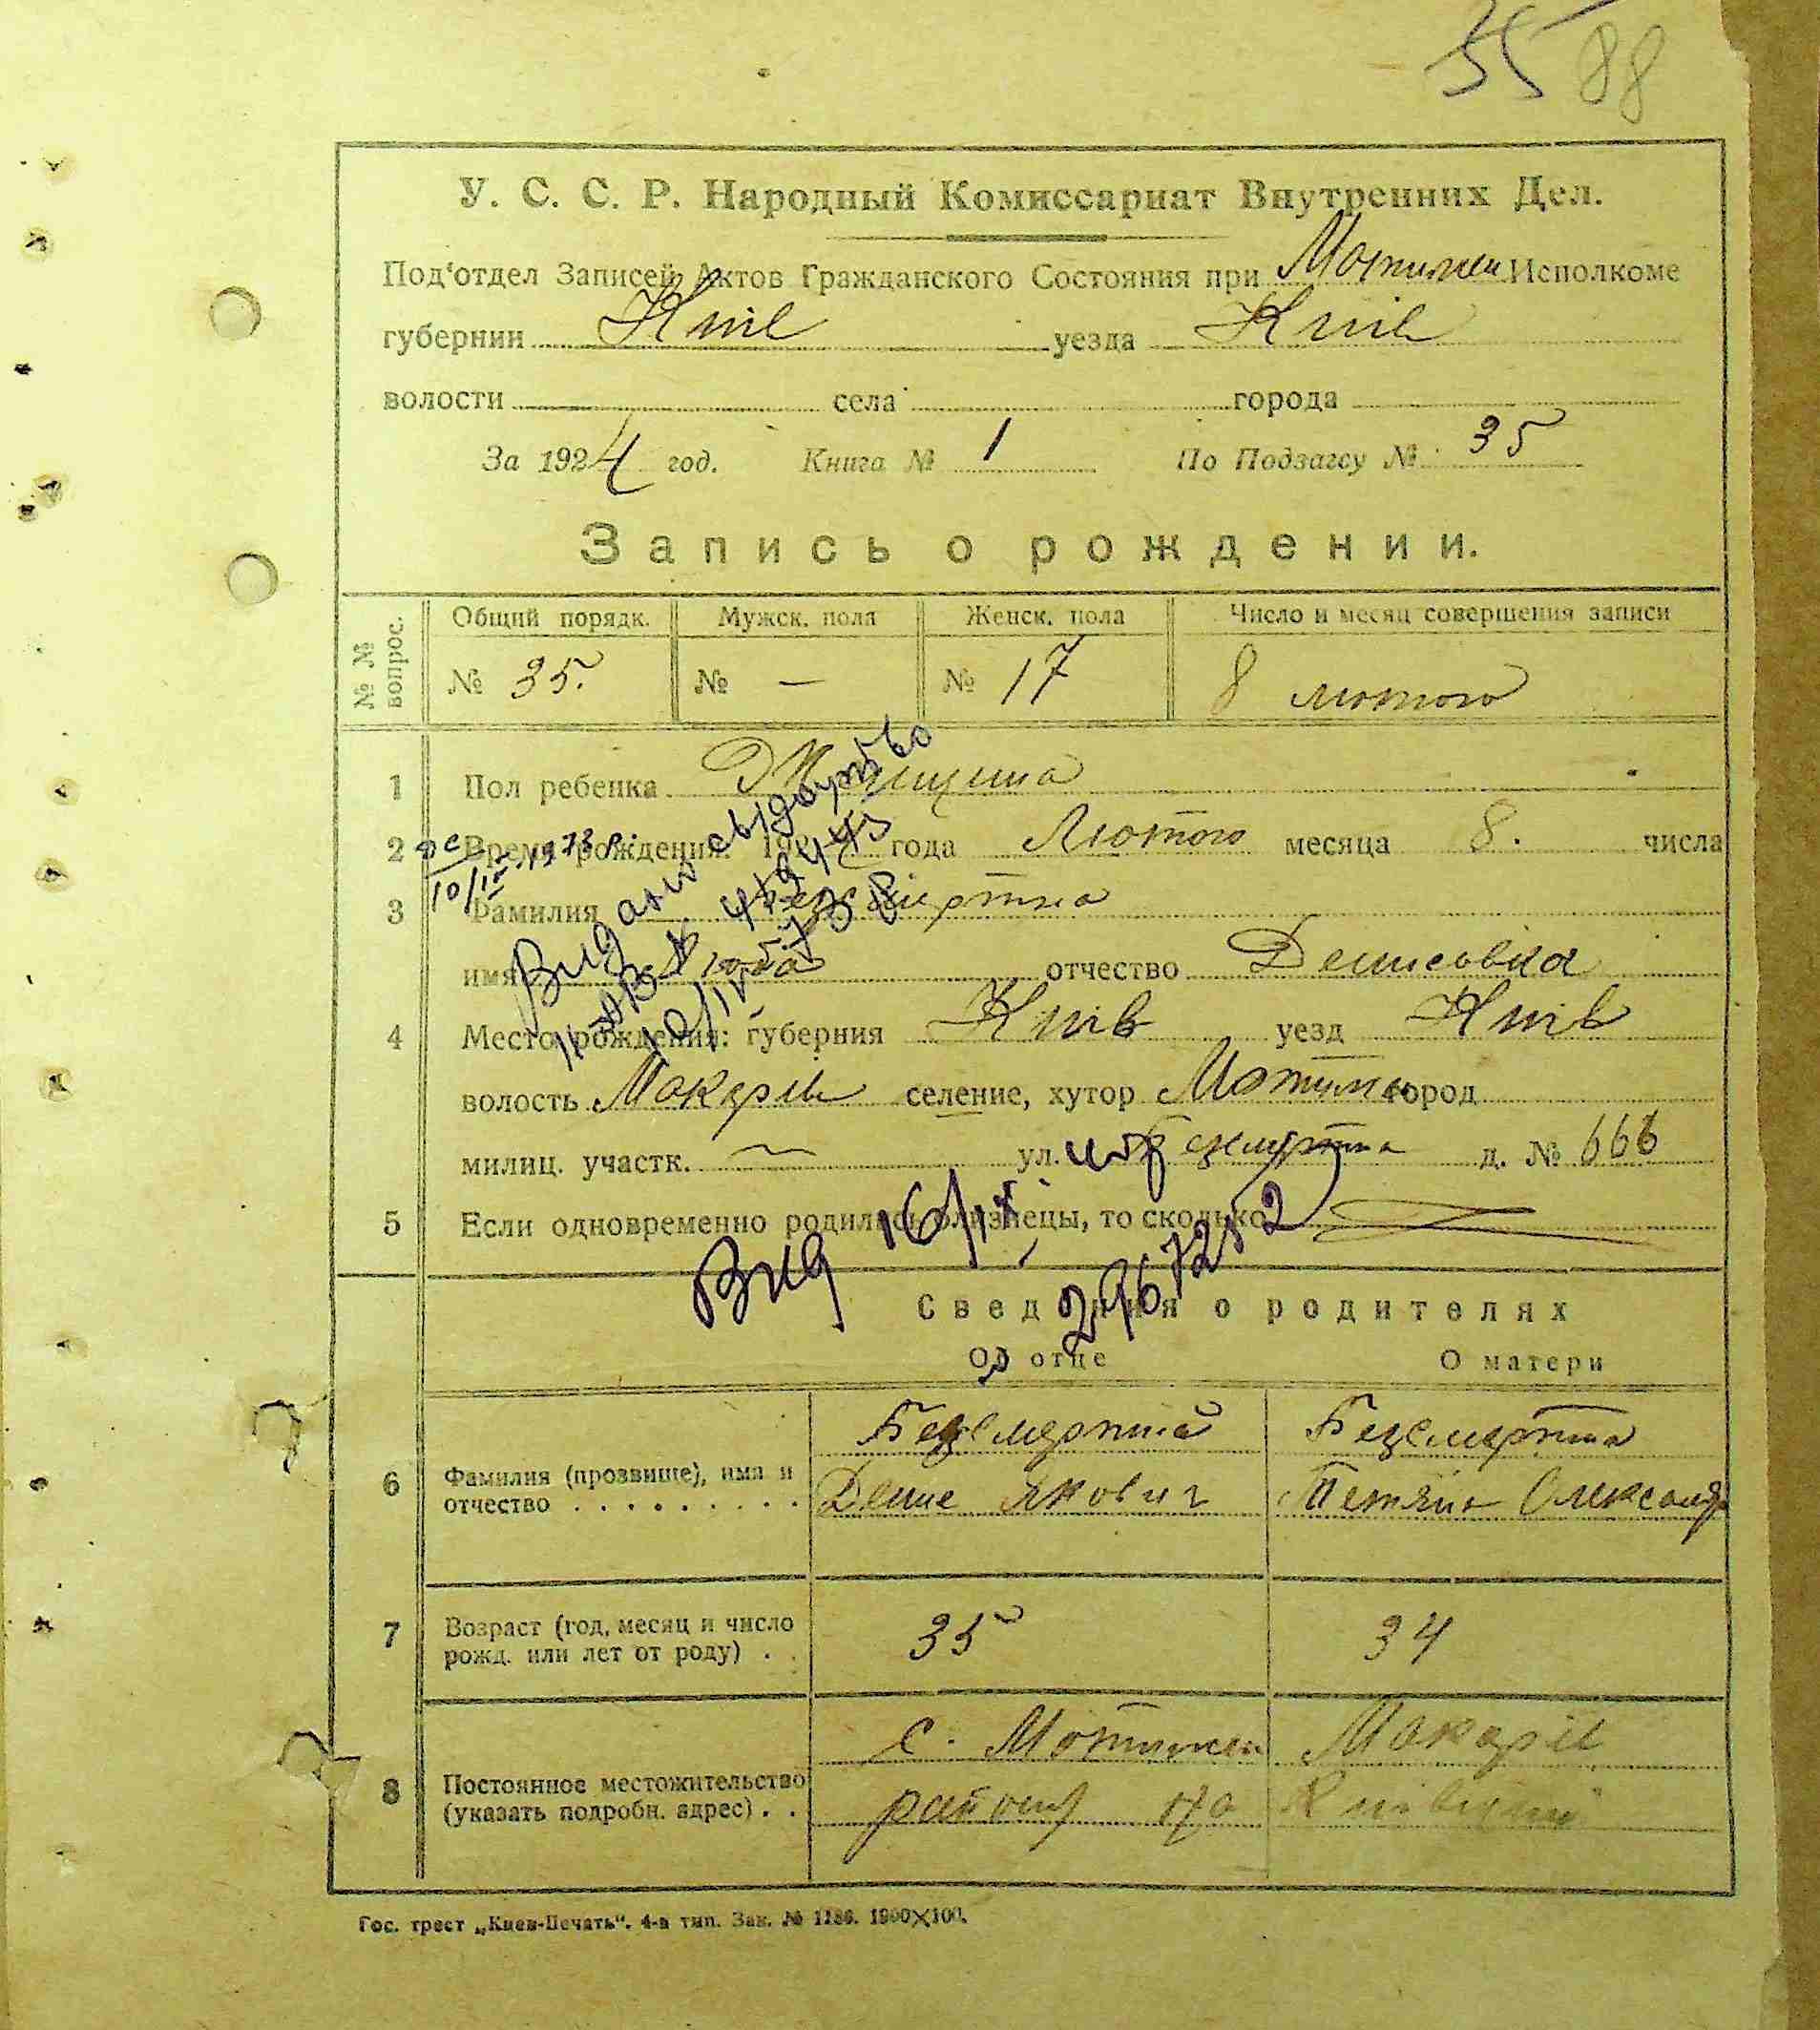 35 88
У. С. С. Р. Народный Комиссариат Внутренних Дел.
Под'отдел Записей Актов Гражданского Состояния при Мотижин Исполкоме
губернии Київ уезда Київ
волости села города
За 1924 год. Книга № 1 По Подзагсу № 35
Запись о рождении.
№ № вопрос. Общий порядк. Мужск. пола Женск. пола Число и месяц совершения записи
№ 35. № — № 17 8 лютого
1 Пол ребенка Жінщина
2 Время рождения: 1924 года Лютого месяца 8. числа
3 Фамилия Безсмертна
имя Люба отчество Денисовна
4 Место рождения: губерния Київ уезд Київ
волость Макарів селение, хутор Мотижин город
милиц. участк. — ул. Безсмертна д. №
5 Если одновременно родились близнецы, то сколько
Видано свідоцтво
10/IV 73
Вид 16/IX
Сведения о родителях
Об отце О матери
6 Фамилия (прозвище), имя и отчество Безсмертний Безсмертна
Денис Якович Тетяна Олександр
7 Возраст (год, месяц и число рожд. или лет от роду) 35 34
8 Постоянное местожительство (указать подробн. адрес) с. Мотижин Макарів
району на Київщині
Гос. трест „Киев-Печать". 4-я тип. Зак. № 1186. 1900×100.